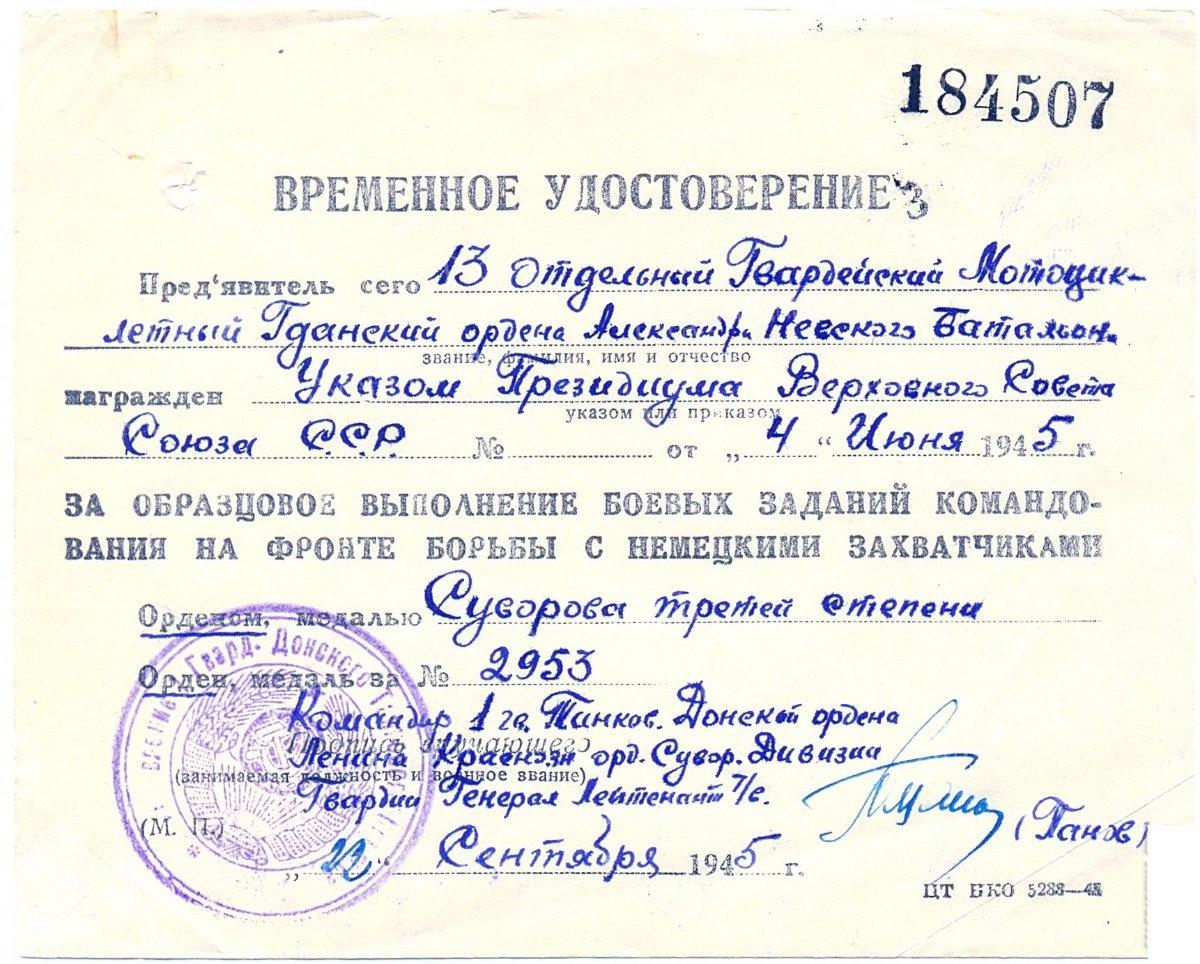 184507
ВРЕМЕННОЕ УДОСТОВЕРЕНИЕ З
Пред'явитель сего 13 отдельный Гвардейский Мотоцик-
летный Гданский ордена Александра Невского Батальон
звание, фамилия, имя и отчество
награжден Указом Президиума Верховного Совета
указом или приказом
Союза С.С.Р. № от „4“ Июня 1945 г.
ЗА ОБРАЗЦОВОЕ ВЫПОЛНЕНИЕ БОЕВЫХ ЗАДАНИЙ КОМАНДО-
ВАНИЯ НА ФРОНТЕ БОРЬБЫ С НЕМЕЦКИМИ ЗАХВАТЧИКАМИ
Орденом, медалью Суворова третей степени
Орден, медаль за № 2953
Командир 1 гв. Танков. Донской ордена
Подпись вручающего
Ленина Краснозн орд. Сувор. Дивизии
(занимаемая должность и военное звание)
Гвардии Генерал Лейтенант Т/в.
(Панов)
(М. П.)
„22“ Сентября 1945 г.
ЦТ БКО 5288—4
Гвард. Донского